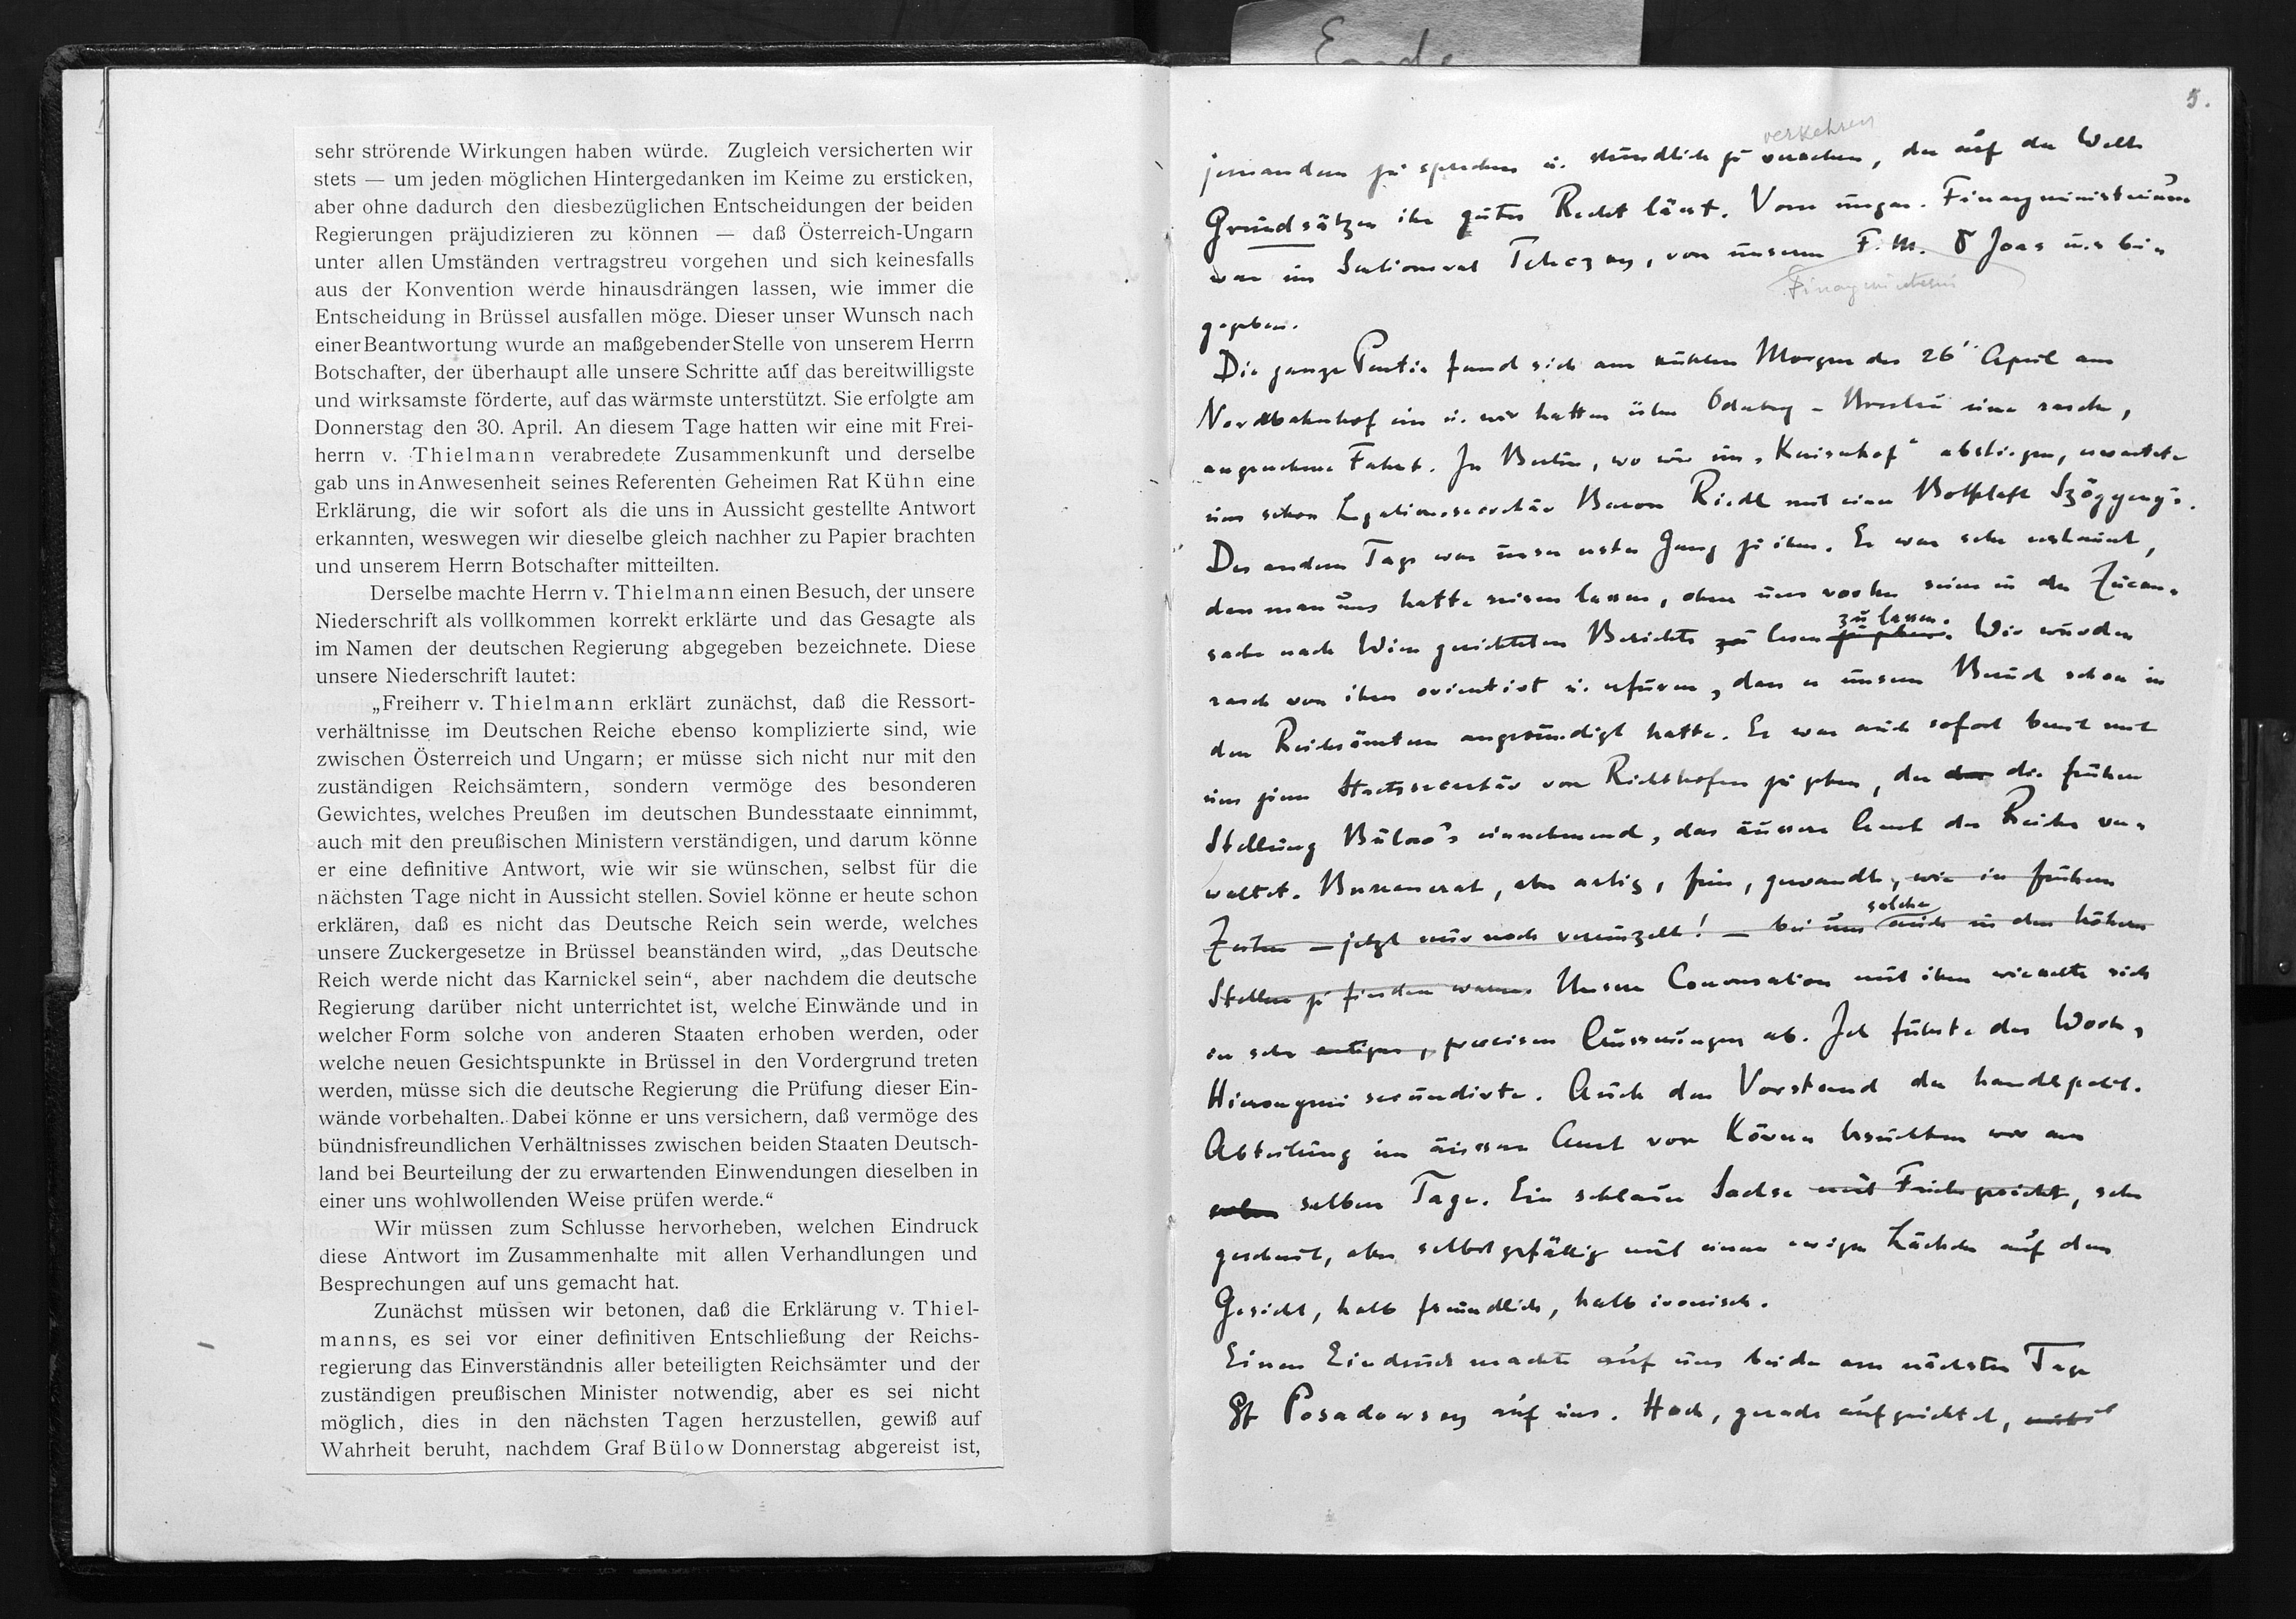 Ende
sehr strörende Wirkungen haben würde. Zugleich versicherten wir
stets — um jeden möglichen Hintergedanken im Keime zu ersticken,
aber ohne dadurch den diesbezüglichen Entscheidungen der beiden
Regierungen präjudizieren zu können — daß Österreich-Ungarn
unter allen Umständen vertragstreu vorgehen und sich keinesfalls
aus der Konvention werde hinausdrängen lassen, wie immer die
Entscheidung in Brüssel ausfallen möge. Dieser unser Wunsch nach
einer Beantwortung wurde an maßgebender Stelle von unserem Herrn
Botschafter, der überhaupt alle unsere Schritte auf das bereitwilligste
und wirksamste förderte, auf das wärmste unterstützt. Sie erfolgte am
Donnerstag den 30. April. An diesem Tage hatten wir eine mit Frei-
herrn v. Thielmann verabredete Zusammenkunft und derselbe
gab uns in Anwesenheit seines Referenten Geheimen Rat Kühn eine
Erklärung, die wir sofort als die uns in Aussicht gestellte Antwort
erkannten, weswegen wir dieselbe gleich nachher zu Papier brachten
und unserem Herrn Botschafter mitteilten.
Derselbe machte Herrn v. Thielmann einen Besuch, der unsere
Niederschrift als vollkommen korrekt erklärte und das Gesagte als
im Namen der deutschen Regierung abgegeben bezeichnete. Diese
unsere Niederschrift lautet:
„Freiherr v. Thielmann erklärt zunächst, daß die Ressort-
verhältnisse im Deutschen Reiche ebenso komplizierte sind, wie
zwischen Österreich und Ungarn; er müsse sich nicht nur mit den
zuständigen Reichsämtern, sondern vermöge des besonderen
Gewichtes, welches Preußen im deutschen Bundesstaate einnimmt,
auch mit den preußischen Ministern verständigen, und darum könne
er eine definitive Antwort, wie wir sie wünschen, selbst für die
nächsten Tage nicht in Aussicht stellen. Soviel könne er heute schon
erklären, daß es nicht das Deutsche Reich sein werde, welches
unsere Zuckergesetze in Brüssel beanständen wird, „das Deutsche
Reich werde nicht das Karnickel sein“, aber nachdem die deutsche
Regierung darüber nicht unterrichtet ist, welche Einwände und in
welcher Form solche von anderen Staaten erhoben werden, oder
welche neuen Gesichtspunkte in Brüssel in den Vordergrund treten
werden, müsse sich die deutsche Regierung die Prüfung dieser Ein-
wände vorbehalten. Dabei könne er uns versichern, daß vermöge des
bündnisfreundlichen Verhältnisses zwischen beiden Staaten Deutsch-
land bei Beurteilung der zu erwartenden Einwendungen dieselben in
einer uns wohlwollenden Weise prüfen werde.“
Wir müssen zum Schlusse hervorheben, welchen Eindruck
diese Antwort im Zusammenhalte mit allen Verhandlungen und
Besprechungen auf uns gemacht hat.
Zunächst müssen wir betonen, daß die Erklärung v. Thiel-
manns, es sei vor einer definitiven Entschließung der Reichs-
regierung das Einverständnis aller beteiligten Reichsämter und der
zuständigen preußischen Minister notwendig, aber es sei nicht
möglich, dies in den nächsten Tagen herzustellen, gewiß auf
Wahrheit beruht, nachdem Graf Bülow Donnerstag abgereist ist,
5.
verkehren
jemandem zu sprechen u. stündlich zu, der auf der Welt
Grundsätzen ihr gutes Recht läßt. Vom ungar. Finanzministerium
war im Sectionsrat Teleczky, von unserm F. M. Joas uns bei
Finanzministerium
gegeben.
Die ganze Partie fand sich am kühlen Morgen des 26 April am
Nordbahnhof ein u. wir hatten über Oderberg - Breslau eine rasche,
angenehme Fahrt. In Berlin, wo wir im „Kaiserhof“ abstiegen, erwartete
uns schon Legationssecretär Baron Riedl mit einer Botschaft Szögyeny's.
Des andern Tags war unser erster Gang zu ihm. Er war sehr erstaunt,
dass man uns hatte reisen lassen, ohne uns vorher seine in der Zucker-
zu lassen.
sache nach Wien gerichteten Berichte zu lesen. Wir wurden
rasch von ihm orientirt u. erfuren, dass er unsern Besuch schon in
den Reichsämtern angekündigt hatte. Er war auch sofort bereit mit
uns zum Staatssecretär von Richthofen zu gehen, der die frühere
Stellung Bülow's einnehmend, das äussere Amt des Reiches ver-
waltet. Bureaucrat, aber artig, fein, gewandt, wie in frühern
solche
Zeiten — jetzt nur noch vereinzelt! — bei uns auch in den höhern
Stellen zu finden waren. Unsere Conversation mit ihm wickelte sich
in sehr artigen, precisen Äusserungen ab. Ich führte das Wort,
Hieronymi secundirte. Auch den Vorstand der handelspolit.
Abteilung im äussern Amt von Körner besuchten wir am
selben Tage. Ein schlauer Sachse, sehr
gescheut, aber selbstgefällig mit einem ewigen Lächeln auf dem
Gesicht, halb freundlich, halb ironisch.
Einen Eindruck machte auf uns beide am nächsten Tage
Gf Posadowsky auf uns. Hoch, gerade aufgerichtet,